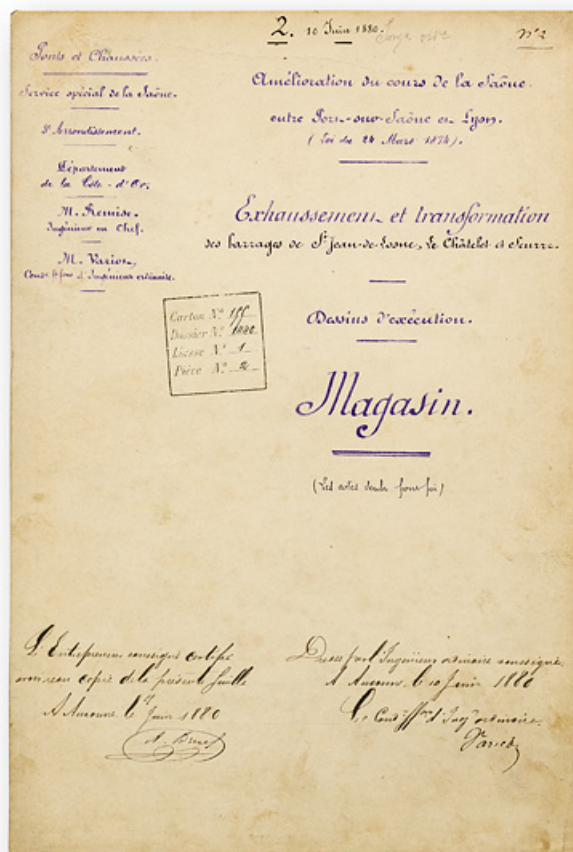 2. 10 Juin 1880.
N° 2
Ponts et Chaussées.
Service spécial de la Saône.
Arrondissement.
Département
de la Côte-d'Or.
M.
Ingénieur en Chef.
M.
Condr. fons d'Ingénieur ordinaire.
Amélioration du cours de la Saône
entre Port-sur-Saône et Lyon.
(Loi du 24 Mars 1874).
Exhaussement et transformation
des barrages de St Jean-de-Losne, Le Châtelet et Seurre.
Dessins d'exécution.
Carton N°
Dossier N°
Liasse N° 1
Pièce N° 2
Magasin.
(Les cotes seules font foi)
L'Entrepreneur soussigné certifie
avoir reçu copie de la présente feuille
A Auxonne, le Juin 1880
Dressé par l'Ingénieur ordinaire soussigné.
A Auxonne, le 10 Juin 1880
Le Condr. ffons d'Ingr ordinaire.